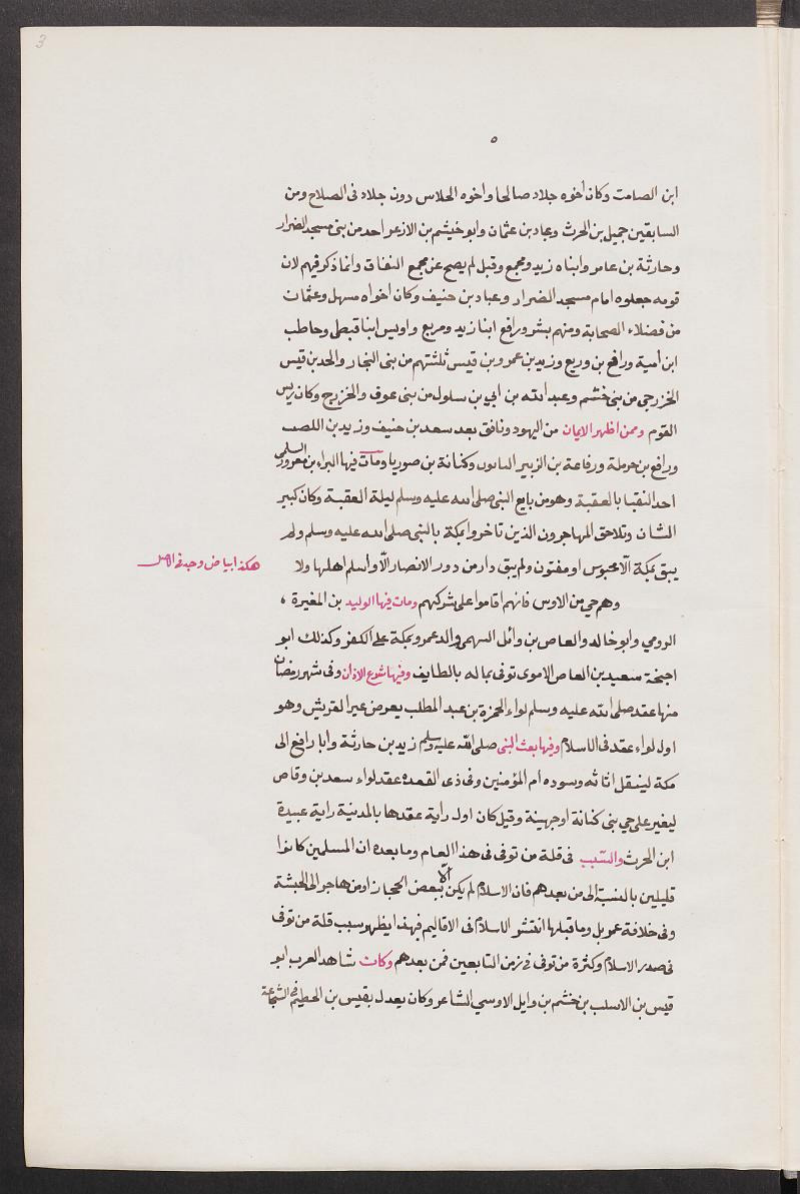 3
٥
ابن الصامت وكان أخوه جلاد صالحا واخوه الحلاس دون جلاد فى الصلاح ومن
السابقين جميل بن الحرث وبجاد بن عثمان وابو خيثم بن الازعر احد من بنى مسجد الضرار
وحارثة بن عامر وابناه زيد ومجمع وقيل لم يصح عن مجمع النفاق وانما ذكر فيهم لان
قومه جعلوه امام مسجد الضرار وعباد بن حنيف وكان اخواه سهل وعثمان
من فضلاء الصحابة ومنهم بشر ورافع ابنا زيد ومربع واويس ابنا قبطى وحاطب
ابن أمية ورافع بن وديع وزيد بن عمرو بن قيس ثلثتهم من بنى النجار والجد بن قيس
الخزرجى من بنى خشم وعبد الله بن أبي بن سلول من بنى عوف والخزرج وكان ريس
القوم وممن اظهر الايمان من اليهود ونافق بعد سعد بن حنيف وزيد بن اللصت
ورافع بن حرملة ورفاعة بن الزبير وكنانة بن صوريا ومات فيها البراء بن معرور السلمى
احد النقبا بالعقبة وهو من بايع النبى صلى الله عليه وسلم ليلة العقبة وكان كبير
الشان وتلاحق المهاجرون الذين تاخروا بمكة بالنبى صلى الله عليه وسلم ولم
يبق بمكة الا محبوس او مفتون ولم يبق دار من دور الانصار الا واسلم اهلها ولا
هكذا بياض وجد فى الاصل
وهم حي من الاوس فانهم اقاموا على شركهم ومات فيها الوليد بن المغيرة ،
الرومي وابو خالد والعاص بن وائل السهمى والد عمرو بمكة على الكفر وكذلك ابو
احيحة سعيد بن العاص الاموى توفى بماله بالطايف وفيها شرع الاذان وفى شهر رمضان
منها عقد صلى الله عليه وسلم لواء لحمزة بن عبد المطلب يعرض عير القريش وهو
اول لواء عقد فى الاسلام وفيها بعث النبى صلى الله عليه وسلم زيد بن حارثة وابا رافع الى
مكة لينقل اثاثه وسوده ام المؤمنين وفى ذى القعده عقد لواء سعد بن وقاص
ليغير على حي بنى كنانة او جهينة وقيل كان اول راية عقدها بالمدينة راية عبيدة
ابن الحرث والسبب فى قلة من توفى فى هذا العام وما بعده ان المسلمين كانوا
قليلين بالنسبة الى من بعدهم فان الاسلام لم يكن الا ببعض الحجاز او من هاجر الى الحبشة
وفى خلافة عمر بل وما قبلها انتشر الاسلام فى الاقاليم فبهذا يظهر سبب قلة من توفى
فى صدر الاسلام وكثرة من توفى فى زمن التابعين فمن بعدهم وكات شاهد العرب ابو
قيس بن الاسلب بن خشم بن وايل الاوسي الشاعر وكان يعدل بقيس بن الحطيم فى الشجاعة